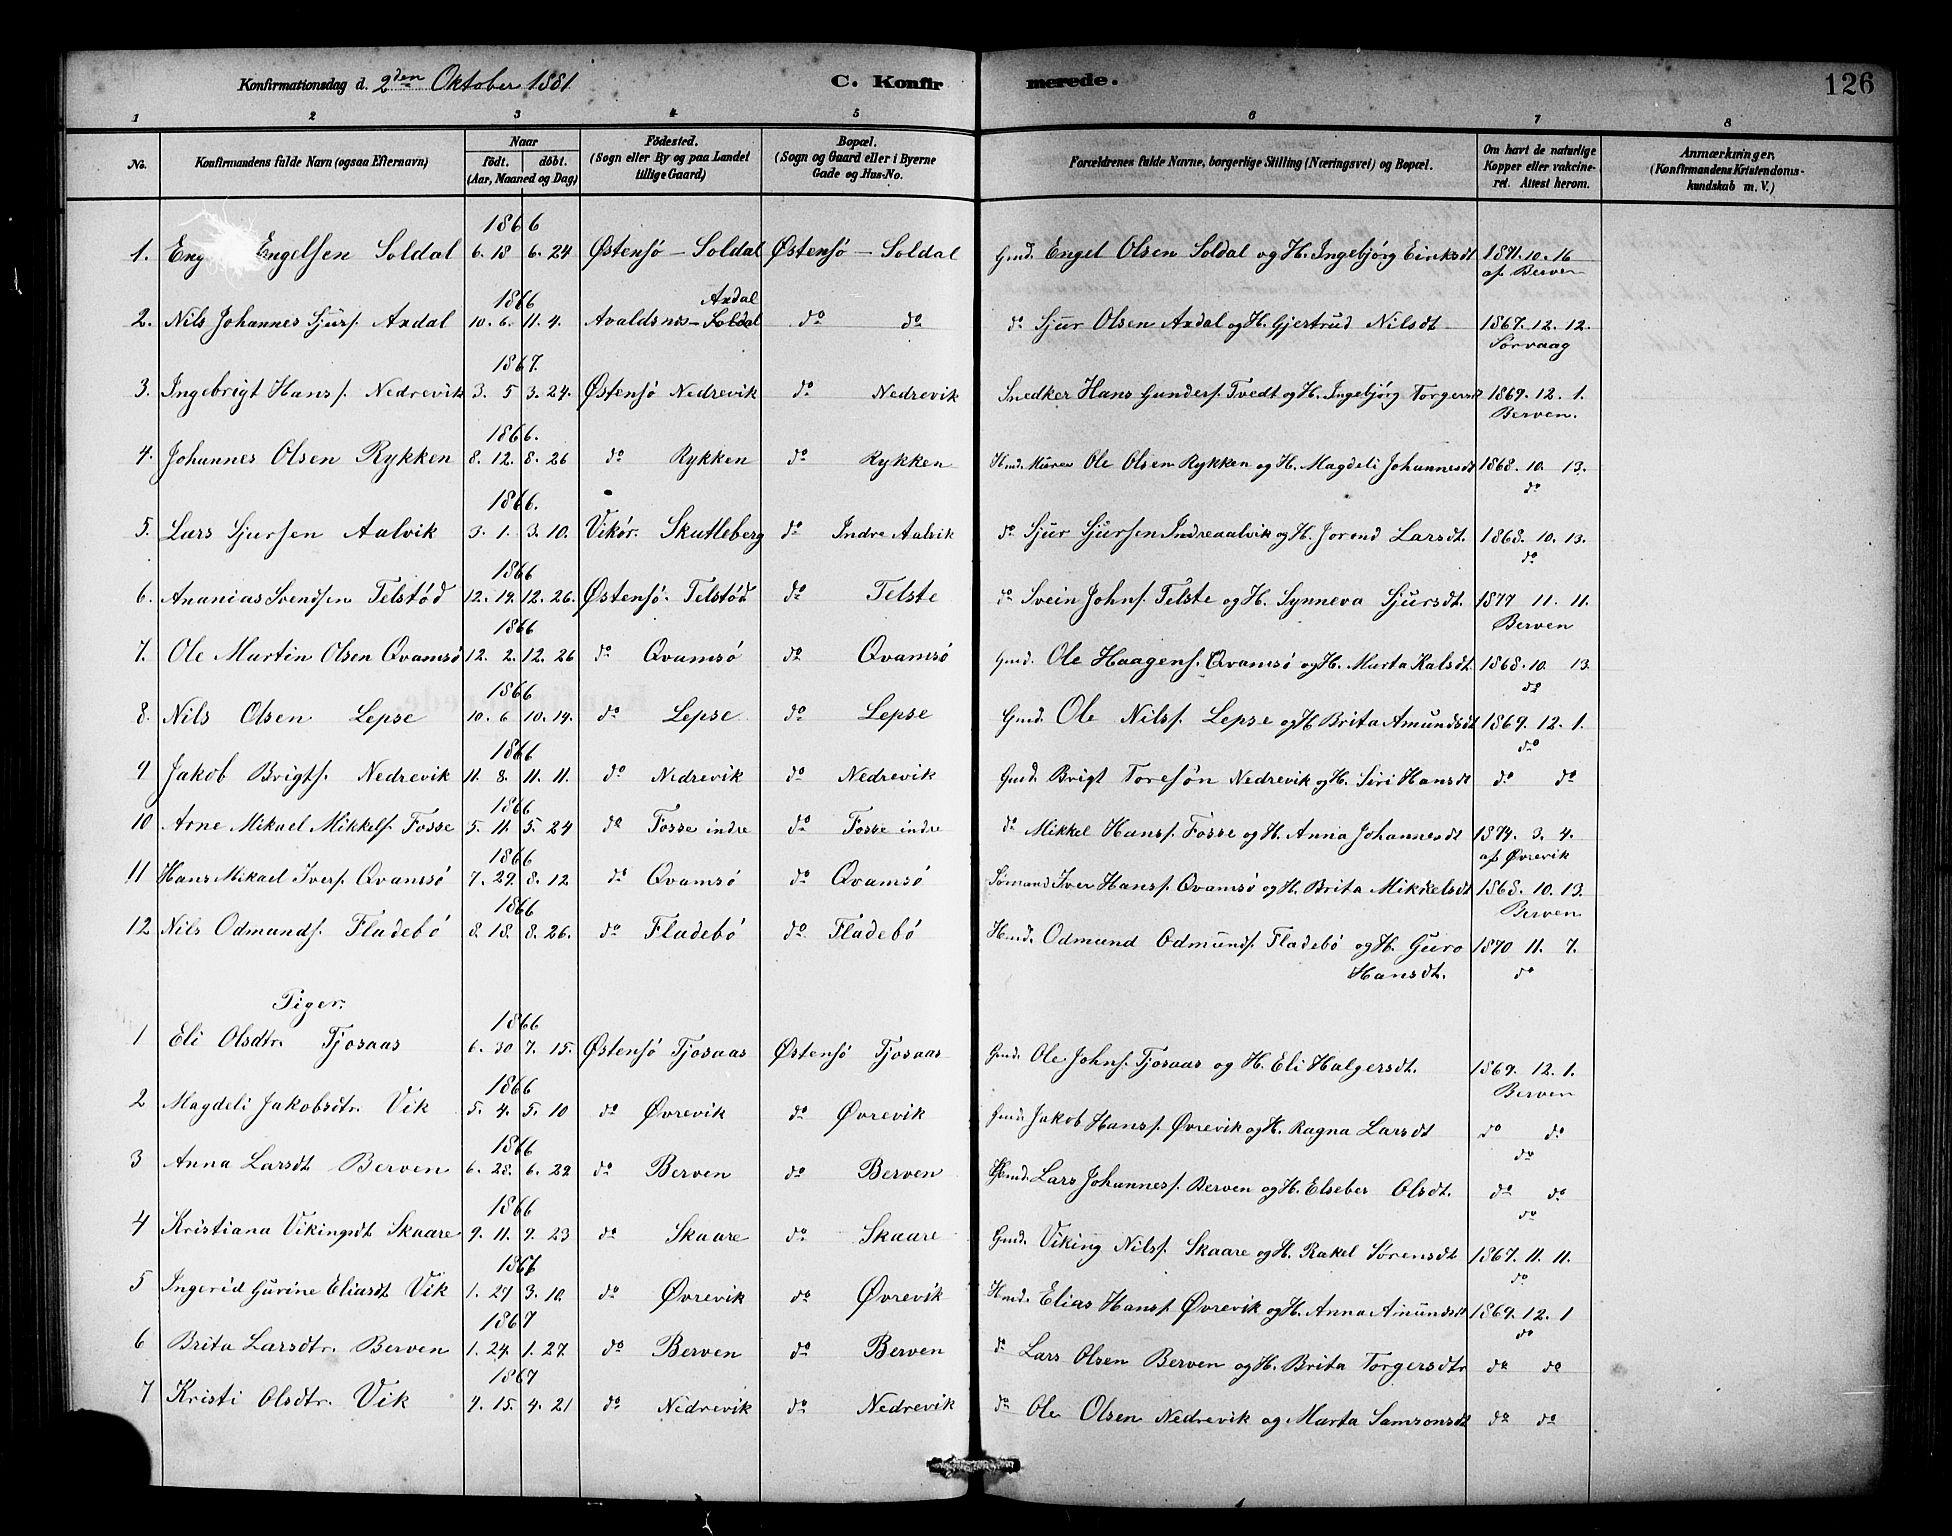 Konfirmationsdag d. 2den Oktober 1881. C. Konfirmerede. 126
1 2 3 4 5 6 7 8
No. Konfirmandens fulde Navn (ogsaa Efternavn) Naar født. døbt. (Aar, Maaned og Dag) Fødested. (Sogn eller By og paa Landet tillige Gaard) Bopæl. (Sogn og Gaard eller i Byerne Gade og Hus-No. Forældrenes fulde Navne, borgerlige Stilling (Næringsvei) og Bopæl. Om havt de naturlige Kopper eller vakcineret. Attest herom. Anmærkninger. (Konfirmandens Kristendomskundskab m. V.)
1866
1. Eng Engelsen Soldal 6. 18 6. 24 Østensö – Soldal Østensö – Soldal Gmd. Engel Olsen Soldal og H. Ingebjørg Eiriksdt 1871. 10. 16
af Berven
1866 Axdal
2. Nils Johannes Sjurs. Axdal 10. 6. 11. 4. Avaldsnes – Soldal do do do Sjur Olsen Axdal og H. Gjertrud Nilsdt 1867. 12. 12.
Sørvaag
1867.
3. Ingebrigt Hanss. Nedrevik 3. 5 3. 24. Østensö Nedrevik do Nedrevik Snedker Hans Gunders. Tvedt og H. Ingebjørg Torgersd 1869. 12. 1.
Berven.
1866.
4. Johannes Olsen Rykken 8. 12. 8. 26 do Rykken do Rykken Hmd. Murer Ole Olsen Rykken og H. Magdeli Johannesdt 1868. 10. 13.
do
1866.
5. Lars Sjursen Aalvik 3. 1. 3. 10. Vikör. Skutleberg do Indre Aalvik do Sjur Sjursen Indreaalvik og H. Jorend Larsdt. 1868. 10. 13.
do
1866
6. Ananias Svendsen Telstöd 12. 19. 12. 26. Østensö. Telstöd do Telste do Svein Johns. Telste og H. Synneva Sjursdt. 1877 11. 11.
Berven
1866
7. Ole Martin Olsen Qvamsö 12. 2. 12. 26 do Qvamsö do Qvamsö Gmd. Ole Haagens. Qvamsö og H. Marta Kalsdt. 1868. 10. 13
do
1866
8. Nils Olsen Lepse 10. 6 10. 14. do Lepse. do Lepse Gmd. Ole Nilss. Lepse og H Brita Amundsdt 1869. 12. 1.
do
1866
9 Jakob Brigts. Nedrevik 11. 8. 11. 11. do Nedrevik do Nedrevik Gmd. Brigt Toresön Nedrevik og H. Siri Hansdt do do
1866
10 Arne Mikael Mikkels. Fosse 5. 11. 5. 24 do Fosse indre do Fosse indre do Mikkel Hanss. Fosse og H. Anna Johannesdt 1874. 3. 4.
af Øvrevik
1866
11 Hans Mikael Ivers. Qvamsö 7. 29. 8. 12 do Qvamsö do Qvamsö Sømand Iver Hanss. Qvamsö og H. Brita Mikkelsdt 1868. 10. 13.
Berven
1866
12 Nils Odmunds. Fladebö 8. 18. 8. 26. do Fladebö do Fladebö Hmd. Odmund Odmunds. Fladebö og H. Guro 1870 11. 7.
Hansdt. do
Piger.
1866
1 Eli Olsdtr. Tjosaas 6. 30 7. 15. Østensö Tjosaas Østensö Tjosaas Gmd. Ole Johns. Tjosaas og H. Eli Halgersdt. 1869. 12. 1.
Berven
1866
2 Magdeli Jakobsdtr. Vik 5. 4. 5. 10 do Øvrevik do Øvrevik Gmd. Jakob Hanss. Øvrevik og H. Ragna Larsdt do do
do
1866
3 Anna Larsdt. Berven 6. 28. 6. 29 do Berven do Berven Gmd. Lars Johanness. Berven og H. Elseber Olsdt. do do
do
1866
4 Kristiana Vikingsdt Skaare 9. 11. 9. 23 do Skaare do Skaare Gmd. Viking Nilss. Skaare og H. Rakel Sørensdt 1867. 11. 11.
do
5 Ingerid Gurine Eliasdt Vik 1. 27 3. 10. do Øvrevik do Øvrevik Hmd. Elias Hanss. Øvrevik og H. Anna Amundsdt 1869. 12. 1
do
1867
6 Brita Larsdtr. Berven 1. 24. 1. 27. do Berven do Berven do Lars Olsen Berven og H. Brita Torgersdtr do do
1867
7 Kristi Olsdtr. Vik 4. 15. 4. 21 do Nedrevik do Nedrevik do Ole Olsen Nedrevik og Marta Samsonsdt do do